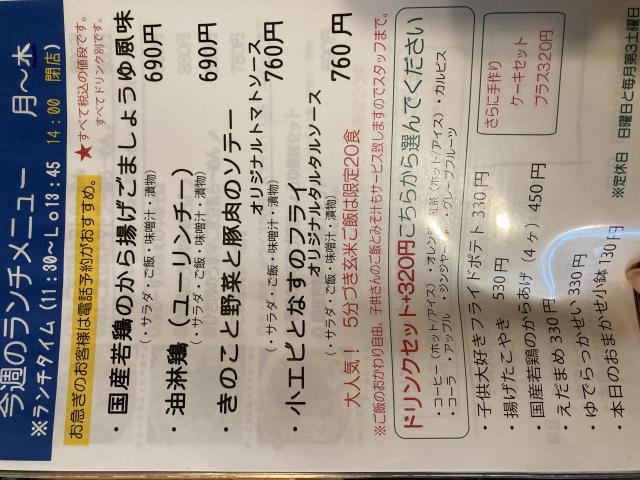 今週のランチメニュー 月～木
※ランチタイム(11:30～L.o13:45 14:00 閉店)
★すべて税込の値段です。
すべてドリンク別です。
お急ぎのお客様は電話予約がおすすめ。
・国産若鶏のから揚げごましょうゆ風味
(・サラダ・ご飯・味噌汁・漬物) 690円
・油淋鶏（ユーリンチー）
(・サラダ・ご飯・味噌汁・漬物) 690円
・きのこと野菜と豚肉のソテー
オリジナルトマトソース
(・サラダ・ご飯・味噌汁・漬物) 760円
・小エビとなすのフライ
オリジナルタルタルソース
(・サラダ・ご飯・味噌汁・漬物) 760円
大人気！ 5分づき玄米ご飯は限定20食
※ご飯のおかわり自由。子供さんのご飯とみそ汁もサービス致しますのでスタッフまで。
ドリンクセット+320円こちらから選んでください
・コーヒー(ホット/アイス)・オレンジ・紅茶(ホット/アイス)・カルピス
・コーラ・アップル・ジンジャー・グレープフルーツ
さらに手作り
ケーキセット
プラス320円
・子供大好きフライドポテト 330円
・揚げたこやき 530円
・国産若鶏のからあげ(4ヶ) 450円
・えだまめ 330円
・ゆでらっかせい 330円
・本日のおまかせ小鉢 130円
※定休日 日曜日と毎月第3土曜日